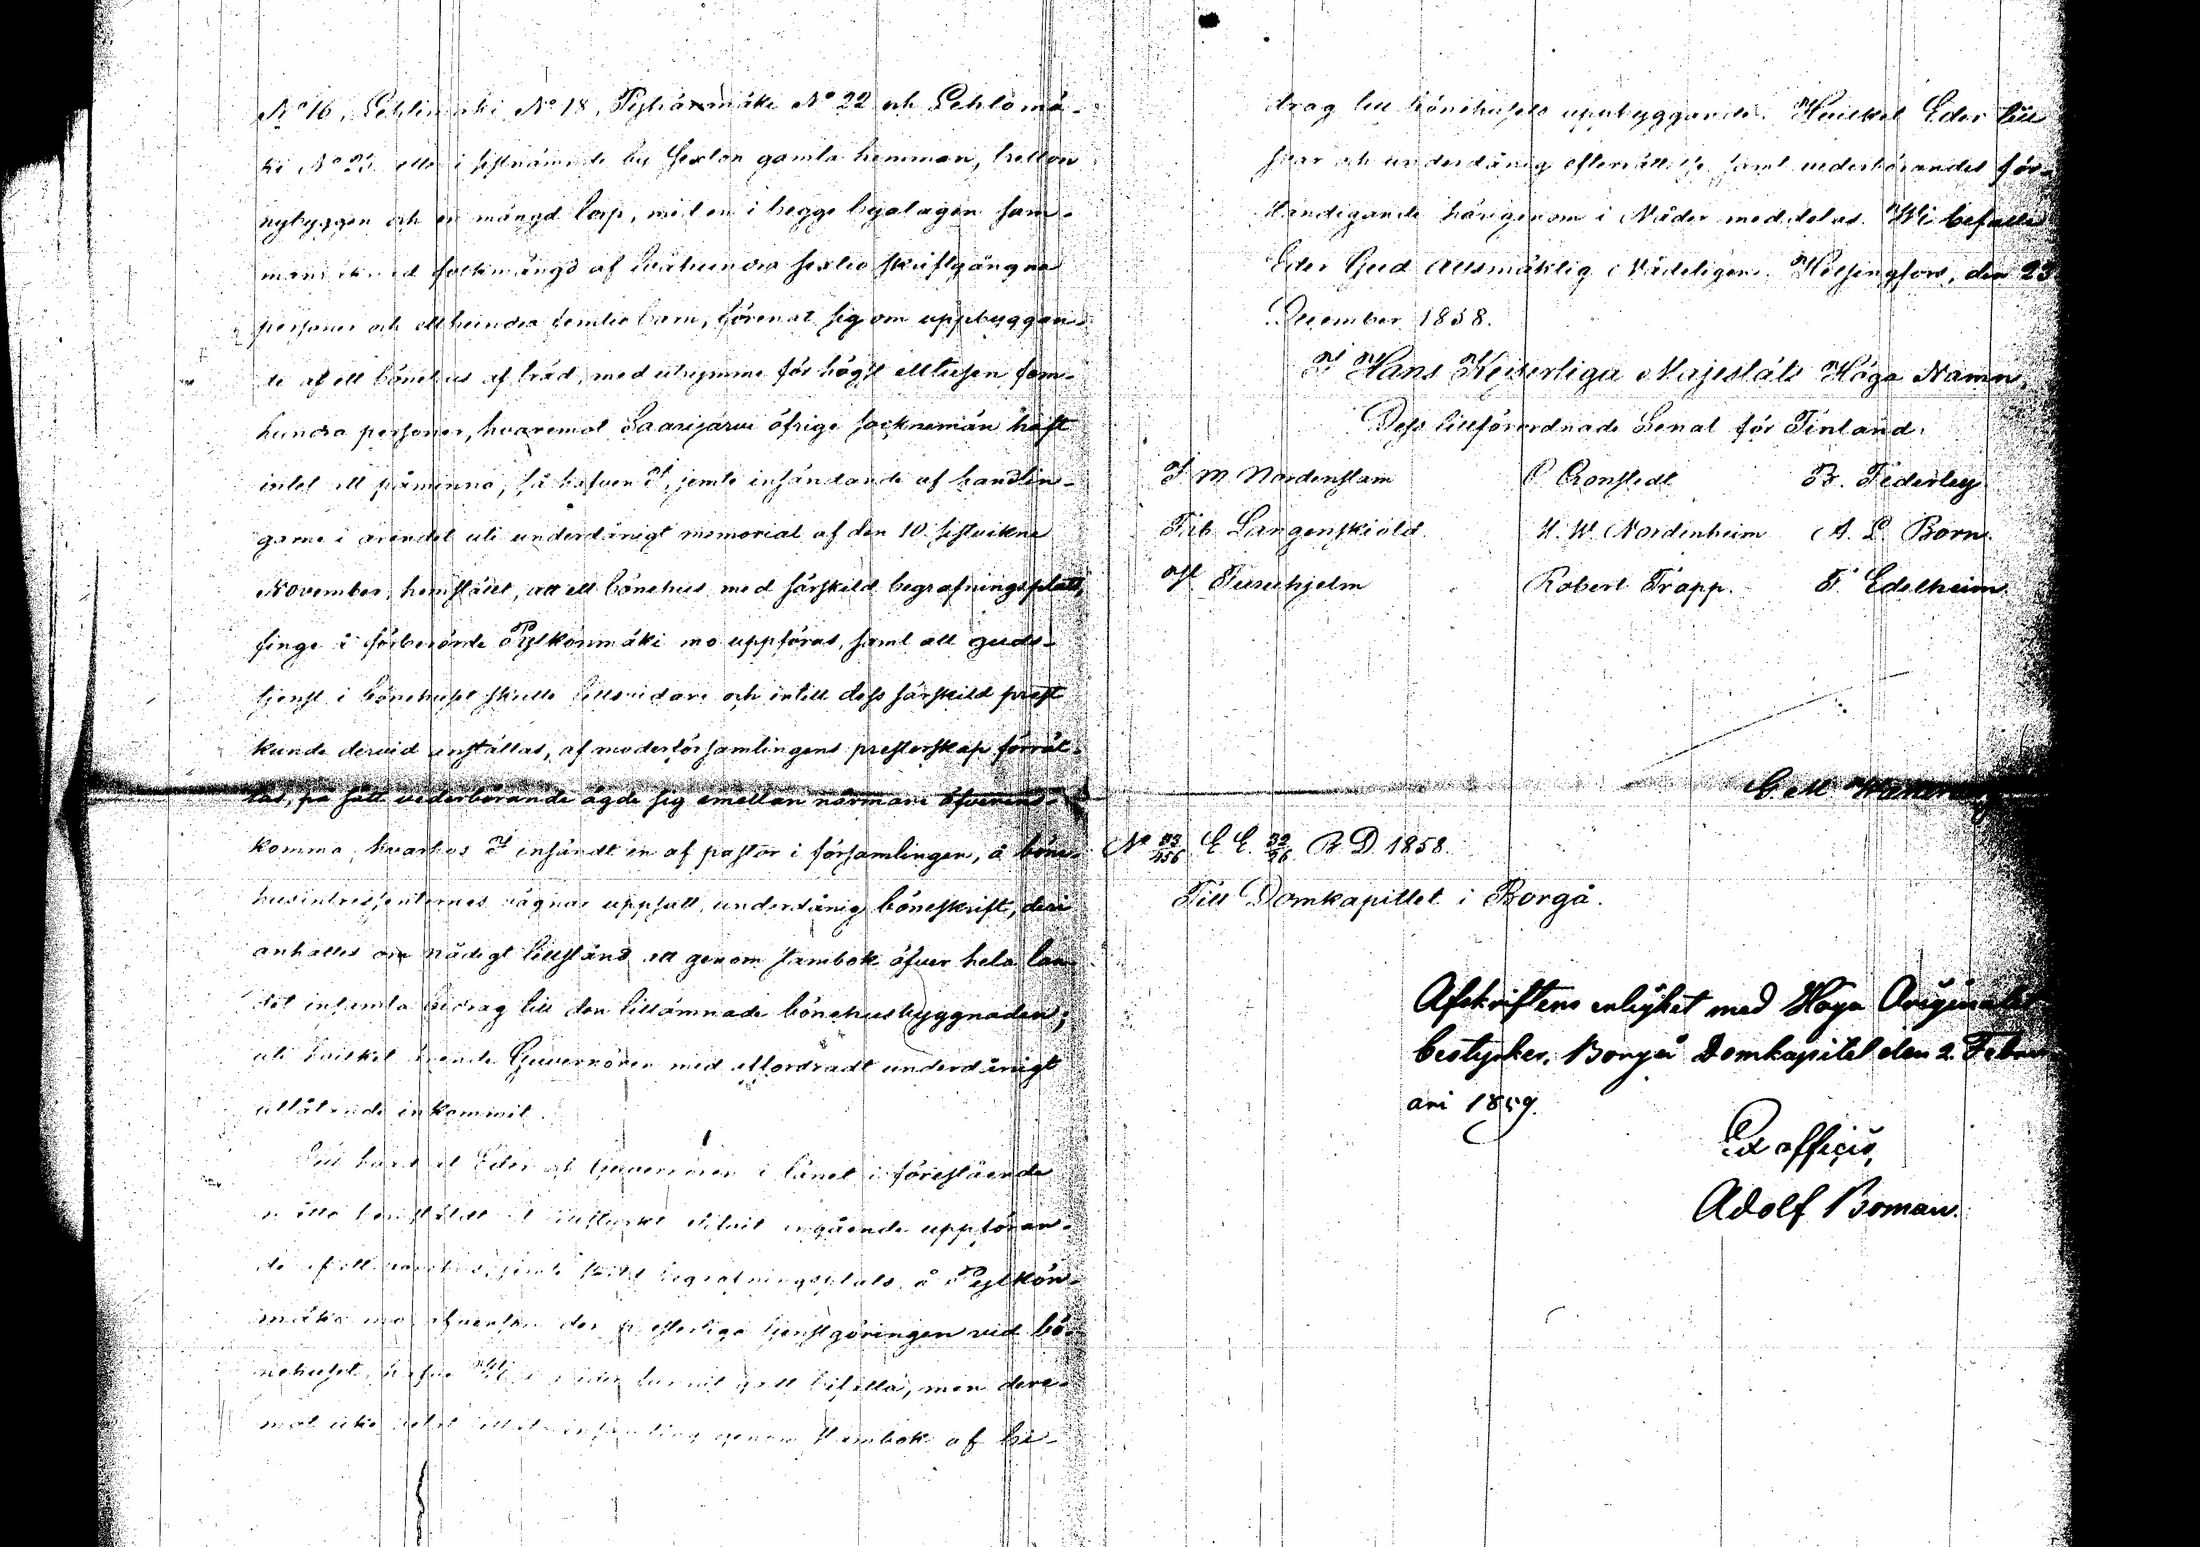 No 16, Lehtimäki No 18, Pylkönmäki No 22 och Lehtomä-
ki No 23 eller i sistnämnde by sexton gamla hemman, tretton
nybyggen och en mängd torp, med en i begge byalagen sam-
manräknad folkmängd af sexhundra sextio skriftgångna
personer och etthundra femtio barn, förenat sig om uppbyggan-
de af ett bönehus af träd, med utrymme för högst ett tusen fem-
hundra personer, hvaremot Saarijärvi öfrige socknemän haft
intet att påminna, så hafven I, jemte insändande af handlin-
garne i ärendet uti underdånigt memorial af den 10 sistvikne
November, hemstält, att ett bönehus med särskild begrafningsplats,
finge å förberörde Pylkönmäki mo uppföras, samt att guds-
tjenst i bönehuset skulle tillsvidare och intill dess särskild prest
kunde dervid anställas, af moderförsamlingens presterskap förrät-
tas, på sätt vederbörande ägde sig emellan närmare öfverens-
komma, hvarhos I insändt en af pastor i församlingen, å böne-
husintressenternes vägnar uppsatt underdånig böneskrift, deri
anhålles om nådigt tillstånd att genom stambok öfver hela lan-
det insamla bidrag till den tillämnade bönehusbyggnaden;
uti hvilket ärende Guvernören med affordradt underdånigt
utlåtande inkommit.
Till hvad af Eder och Guvernören i länet i föreslående
måtto hemstält och tillstyrkt blifvit angående uppföran-
de af ett bönehus, jemte särskild begrafningsplats å Pylkön-
mäki mo äfvensom den presterliga tjenstgöringen vid bö-
nehuset, hafve Wi i nåder funnit godt bifalla, men dere-
mot icke velat tillåta insamling genom stambok af bi-
drag till bönehusets uppbyggande. Hvilket Eder till
svar och underdånig efterrättelse samt vederbörandes för-
ständigande härigenom i Nåder meddelas. Wi befalle
Eder Gud Allsmäktig Nådeligen. Helsingfors, den 23
December 1858.
I Hans Kejserliga Majestäts Höga Namn,
Dess tillförordnade Senat för Finland.
J M Nordenstam C Cronstedt B. Federley
Fab. Langenskiöld H. W. Nordenheim A. L. Born
Af. Furuhjelm Robert Trapp. F. Edelheim
No 33/456 E. E. 32/96 B D 1858.
Till Domkapitlet i Borgå.
Afskriftens enlighet med Höga Originalet
bestyrker. Borgå Domkapitel den 2 Febru-
ari 1859.
Ex officio,
Adolf Boman.